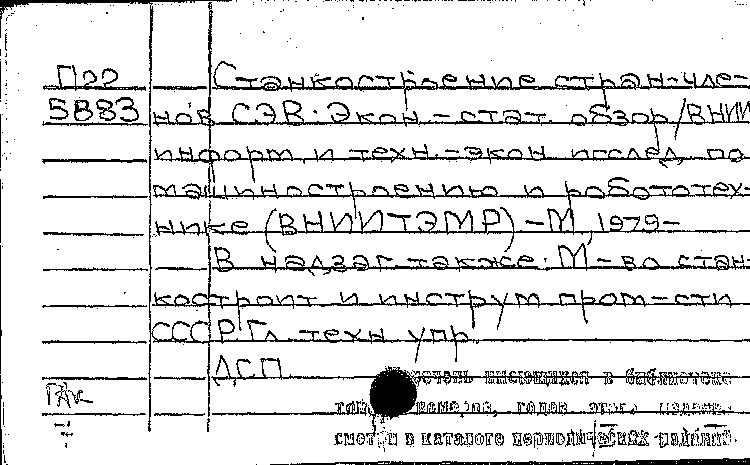 Пор Станкостроение стран-чле-
5883 нов СЭВ: Экон.-стат. обзор/ВНИИ
информ. и техн.-экон. исслед. по
машиностроению и робототех-
нике (ВНИИТЭМР) -М., 1979-
В надзаг. также: М-во стан-
костроит. и инструм. пром-сти
СССР, Гл. техн. упр.
ДСП
имеющихся в библиотеке
номеров, годов этог. издан.
смотри в каталоге периодических изданий.